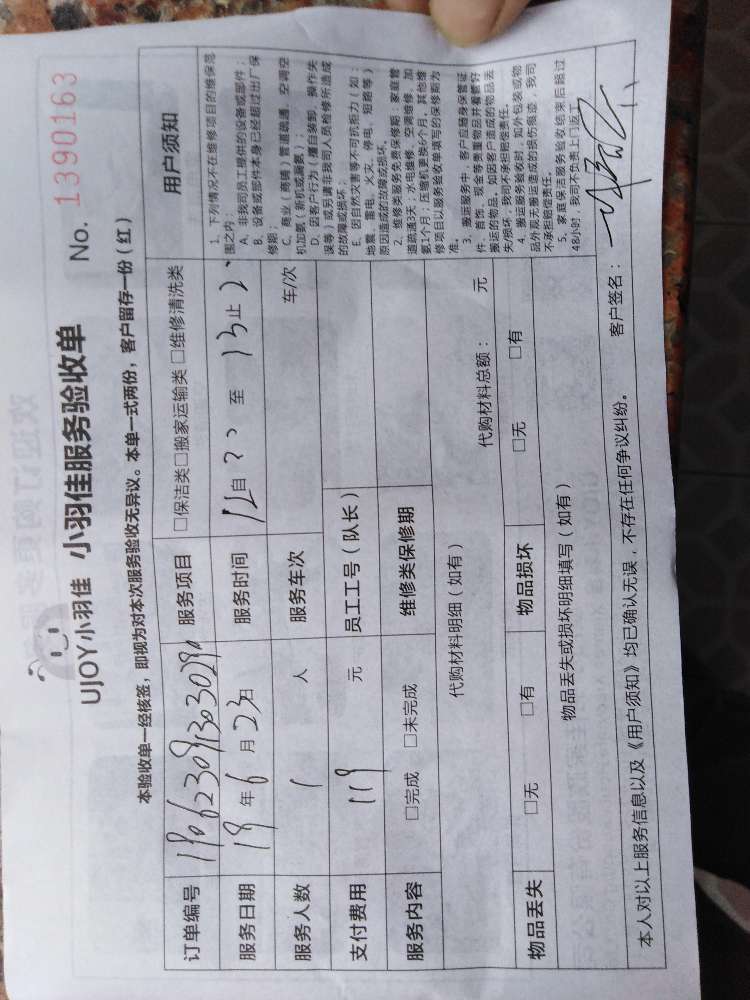 UJOY小羽佳 小羽佳服务验收单 No. 1390163
本验收单一经核签，即视为对本次服务验收无异议。本单一式两份，客户留存一份（红）
订单编号 服务项目 □保洁类□搬家运输类 □维修清洗类
服务日期 19 年 6 月 23 日 服务时间 自 至 13 止
服务人数 1 人 服务车次 车/次
支付费用 119 元 员工工号（队长）
服务内容 □完成 □未完成 维修类保修期
代购材料明细（如有） 代购材料总额： 元
物品丢失 □无 □有 物品损坏 □无 □有
物品丢失或损坏明细填写（如有）
用户须知
1、下列情况不在维修项目的维保范
围之内：
A、非我司员工提供的设备或部件；
B、设备或部件本身已经超过出厂保
修期；
C、商业（商铺）管道疏通、空调空
机加氨（新机或漏氨）；
D、因客户行为（擅自装卸、操作失
误等）或另请非我司人员检修所造成
的故障或损坏；
E、因自然灾害等不可抗拒力（如：
地震、雷电、火灾、停电、短路等）
原因造成的故障或损坏。
2、维修类服务免费保修期：家庭管
道疏通3天；水电维修、空调维修、加
氨1个月；压缩机更换6个月，其他维
修项目以服务验收单填写的保修期为
准。
3、搬运服务中，客户应随身保管证
件、首饰、现金等贵重物品并看管好
搬运的物品，如因客户造成的物品丢
失/损坏，我司不承担赔偿责任。
4、搬运服务验收时，如外包装或物
品外观无搬运造成的损伤痕迹，我司
不承担赔偿责任。
5、家庭保洁服务验收结束后超过
48小时，我司不负责上门返工。
本人对以上服务信息以及《用户须知》均已确认无误，不存在任何争议纠纷。 客户签名：